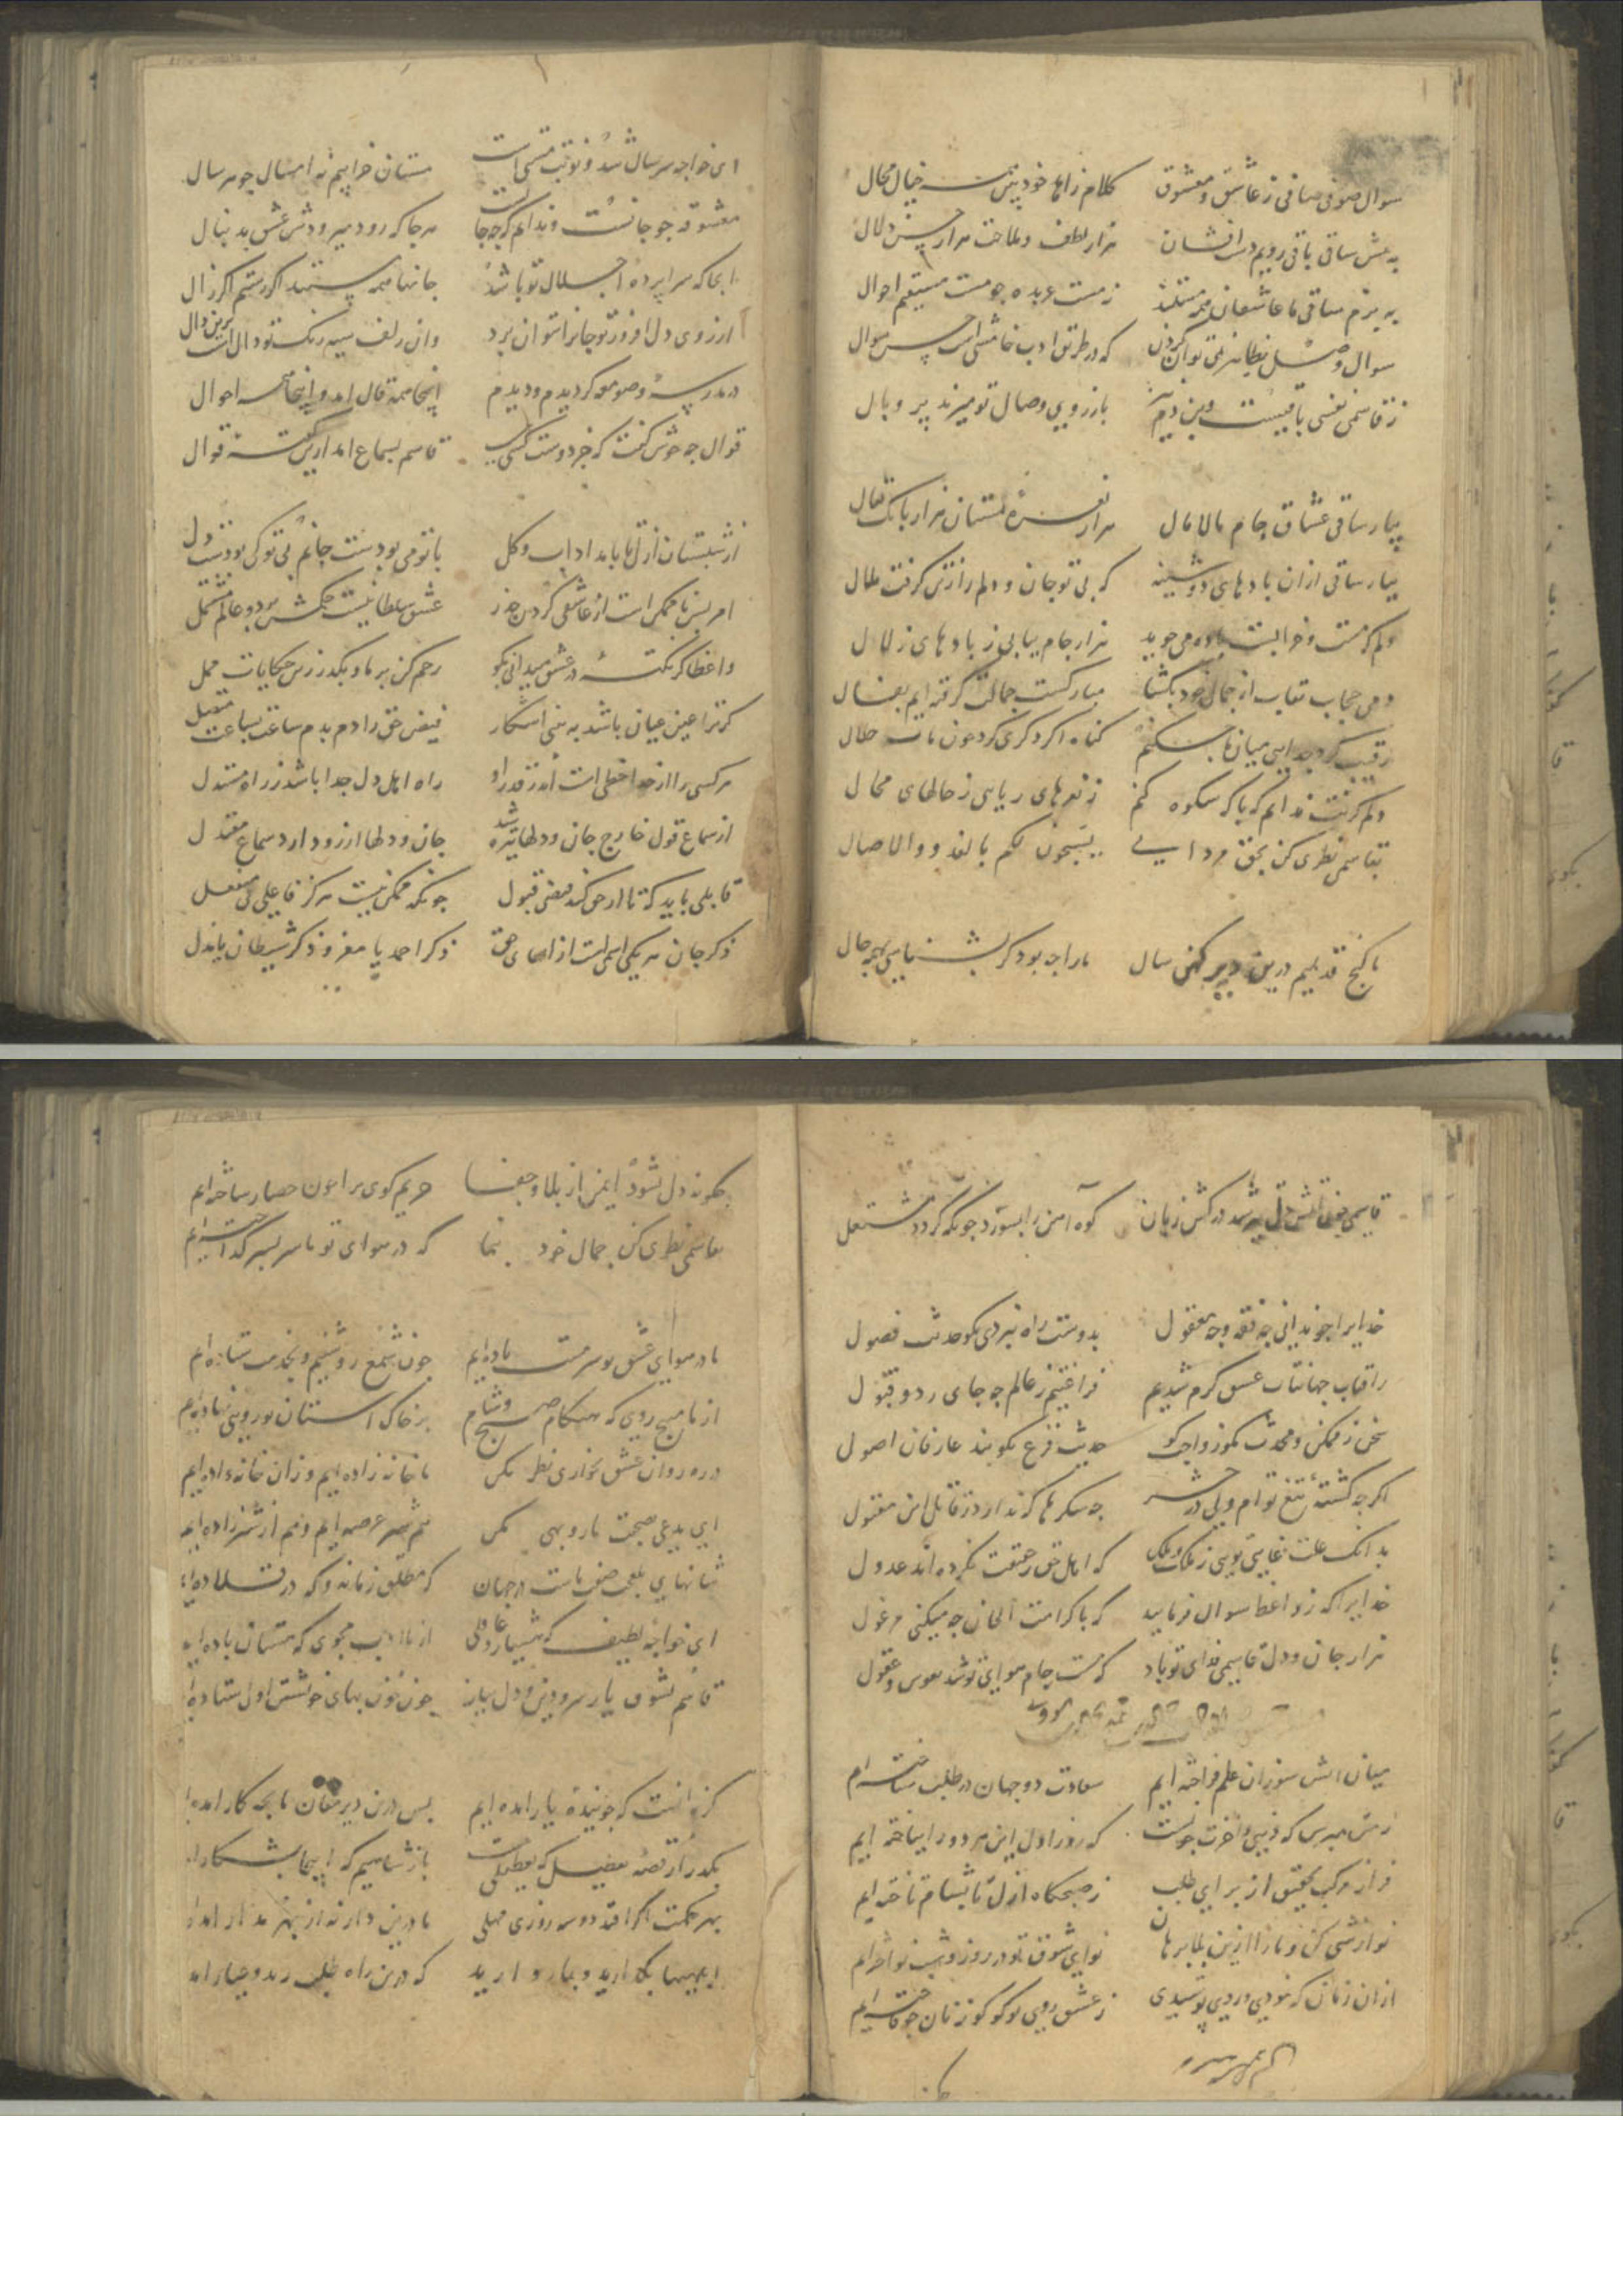 سوال صوفی صافی ز عاشق و معشوق کلام زاهد خودبین خیال محال
به عشق ساقی باقی رویم دست افشان هزار لطف و ملاحت هزار حسن و دلال
به بزم ساقی ما عاشقان همه مستند ز مست عربده جو مست مستقیم احوال
سوال وصل نمی توان کردن که در طریق ادب خامشی است حسن سوال
ز قاسمی نفسی باقیست وین دم نیز بارزوی وصال تو میزند پر و بال
بیار ساقی عشاق جام مالامال هزار نعره مستان هزار بانک تعال
بیار ساقی ازان بادهای دوشینه که بی تو جان و دلم را زتن کرفت ملال
دلم که مست و خرابست باده می جوید هزار جام بیابی ز بادهای زلال
دمی حجاب نقاب از جمال خود بکشا مبارکست جمالت کرفته ایم بفال
رقیب کرد جدایی میان ما کناه اکر دکری کرد خون ماست حلال
دلم کرفت ندانم که با که شکوه کنم ز نعرهای ریایی ز حالهای محال
بقاسمی نظری کن بحق مردانی یسبحون لکم بالغدو والاصال
ما کنج قدیمیم درین دیر کهن سال ما را چه بود کر بشناسی بهمه حال
ای خواجه سر سال شد و نوبت مستی است مستان خرابیم نه امسال چو هر سال
معشوقه چو جانست و ندانم که کجا هر جا که رود میرودش عشق بدنبال
انجا که سراپرده اجلال تو باشد جانها همه پستند اکر رستم اکر زال
از روی دل افروز تو جان را نتوان برد وان زلف سیه رنک تو دال است برین دال
در مدرسه و صومعه کردیدم و دیدم اینجا همه قال امد و اینجا همه احوال
قوال چه خوش کفت که جز دوست کسی نیست قاسم بسماع امد ازین کفته قوال
از شبستان ازل تا بامداد اب و کل با تو می بودست جانم بی تو کی بودست دل
امر بس ناممکن است از عاشقی کردن حذر عشق سلطانیست حکمش بر دو عالم مشتمل
واعظا کر نکته در عشق میدانی بکو رحم کن بر ما و بکذر زین حکایات ممل
کر ترا عین عیان باشد به بینی اشکار فیض حق را دم بدم ساعت بساعت متصل
هر کسی را از خدا حظی است اندر قدر او راه اهل دل جدا باشد ز راه مستدل
از سماع قول خارج جان و دلها تیره شد جان و دلها ارزو دارد سماع معتدل
قابلی باید که تا از حق کند فیضی قبول چونکه ممکن نیست هرکز فاعلی بی منفعل
ذکر جان هر یکی اسمی است از اسمای حق ذکر احمد یا معز و ذکر شیطان یا مذل
قاسمی در کش زبان کوه آهن را بسوزد چونکه کردد مشتعل
خدای را چو ندانی چه فقه و چه معقول بدوست راه نبردی مکو حدیث فصول
ز آفتاب جهانتاب عشق کرم شدیم فراغتیم ز عالم چه جای رد و قبول
سخن ز ممکن و محدث مکو ز واجب کو حدیث فرع نکویند عارفان اصول
اکرچه کشته تیغ توام ولی در حشر چه شکرها که ندارد ز قاتل این مقتول
که اهل حق ز حقیقت نکرده اند عدول
خدای را که ز واعظ سوال فرمایید که با کرامت الحان چه میکنی مرغول
هزار جان و دل قاسمی فدای تو باد که مست جام هوای تو شد نفوس و عقول
میان اتش سوزان علم فراخته ایم سعادت دو جهان در طلب شناخته ایم
ز من مپرس که دنیی و آخرت چونست که روز اول این هر دو را بباخته ایم
فراز مرکب تحقیق از برای طلب ز صبحکاه ازل تا بشام تاخته ایم
نوازشی کن و ما را ازین بلا برهان نوای شوق تو در روز و شب نواخته ایم
ازان زمان که نمودی و روی پوشیدی ز عشق روی تو کوکو زنان چو فاخته ایم
چکونه دل نشود ایمن از بلا و جفا حریم کوی ترا چون حصار ساخته ایم
بقاسمی نظری کن جمال خود بنما که در هوای تو ما سر بسر کداخته ایم
ما در هوای عشق تو سرمست باده ایم چون شمع روشنیم و بخدمت ستاده ایم
از ما مپیچ روی که هنکام صبح و شام بر خاک استان تو رویی نهاده ایم
در ره روان عشق بخواری نظر مکن ما خانه زاده ایم و زان خانه زاده ایم
ای مدعی نصیحت ما رو بهی مکن
ای خواجه لطیف که هشیار و عاقلی از ما ادب مجوی که مستان باده ایم
قاسم بشوق یار سر و دین و دل بباز
کر ندانست که جوینده یار آمده ایم پس درین دیر مغان ما بچه کار امده ایم
بکذر از قصه تعطیل که تعطیلی نیست باز بشناس که اینجا بشکار
بهر حکمت اکر افتد دو سه روزی مهلی ما درین دار نه از بهر مدار امده
ابلهیها بکذارید و بما رو ارید که درین راه طلب رند و عیار امده